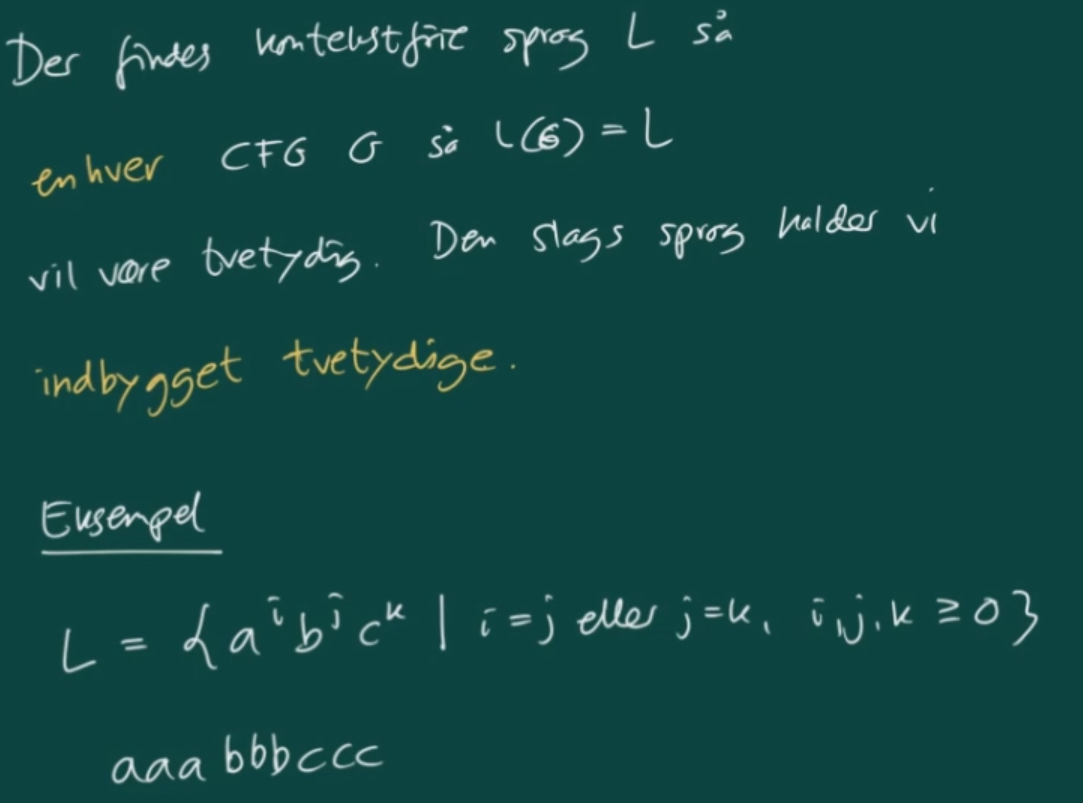 Der findes kontekstfrie sprog L så
enhver CFG G så L(G) = L
vil være tvetydig. Den slags sprog kalder vi
indbygget tvetydige.
Eksempel
L = {aⁱbʲcᵏ | i=j eller j=k, i,j,k ≥ 0}
aaabbbccc